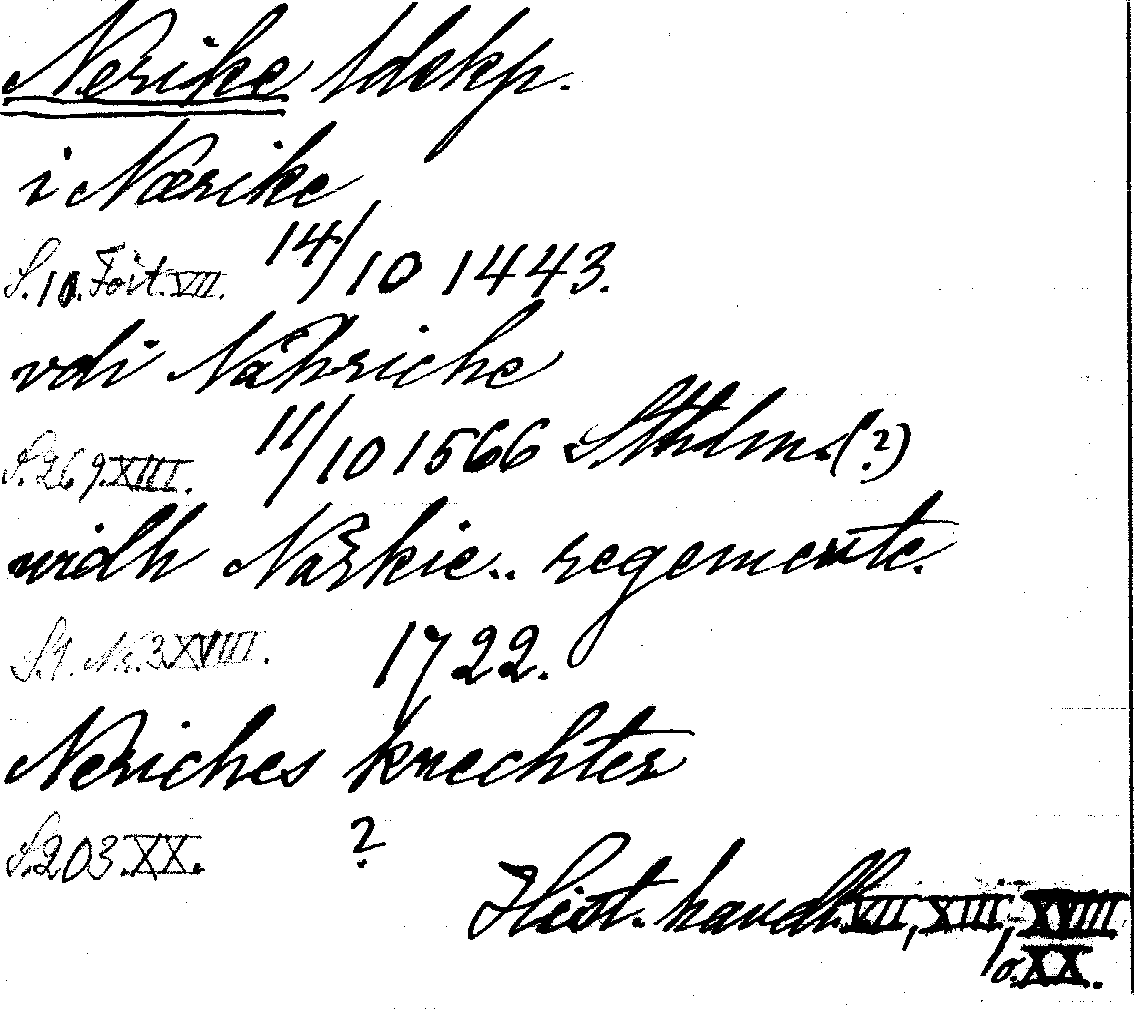 Nerike ldskp.
i Nærike
S. 10. Fört. VII. 14/10 1443.
vdi Nähriche
S. 269. XIII. 11/10 1566 Sthdm. (?)
widh Närkie.. regemente.
S. 1. Nr. 3 XVIII. 1722.
Neriches knechter
S. 203. XX. ?
Hist. handl. VII, XIII, XVIII
o. XX.